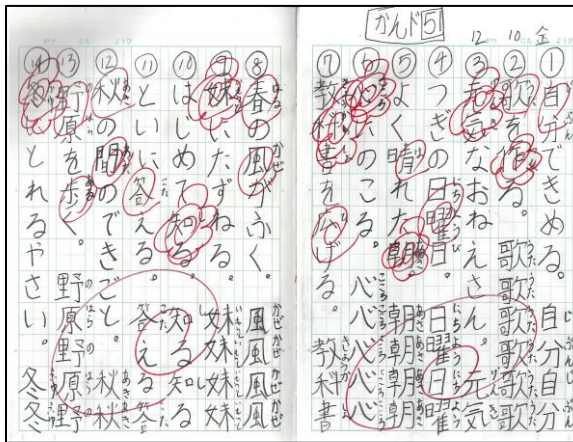 かんド51
金
10
12
① 自分できめる。 自分自分
② 歌を作る。 歌歌歌歌
③ 元気なおねえさん。 元気
④ つぎの日曜日。 日曜日曜
⑤ よく晴れた朝。 朝朝朝朝
⑥ 心にのこる。 心心心心
⑦ 教科書を広げる。 教科書
⑧ 春の風がふく。 風風風風
⑨ 妹にたずねる。 妹妹妹妹
⑩ はじめて知る。 知る知る
⑪ といに答える。 答える答
⑫ 秋の間のできごと。 秋秋
⑬ 野原を歩く。 野原野原野
⑭ 冬にとれるやさい。 冬冬